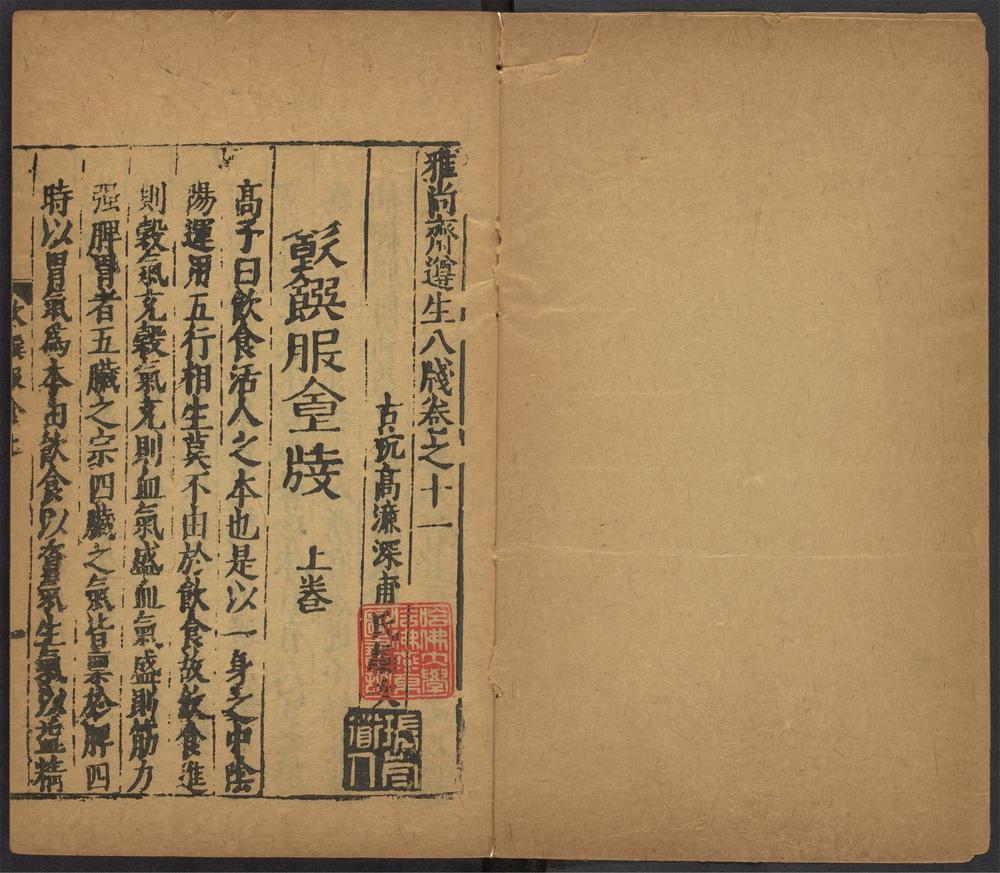 雅尚齋遵生八牋卷之十一
古杭高濂深甫氏
飲饌服食牋 上卷
高子曰飲食活人之本也是以一身之中陰
陽運用五行相生莫不由於飲食故飲食進
則穀氣充穀氣充則血氣盛血氣盛則筋力
强脾胃者五臟之宗四臟之氣皆禀於脾四
時以胃氣爲本由飲食以資氣生氣以益精
哈佛大學
哈佛燕京